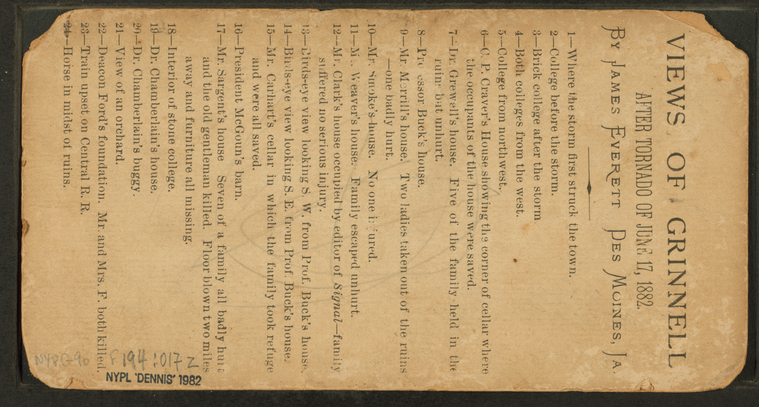 VIEWS OF GRINNELL
AFTER TORNADO OF JUNE 17, 1882.
BY JAMES EVERETT DES MOINES, IA.
1—Where the storm first struck the town.
2—College before the storm.
3—Brick college after the storm
4—Both colleges from the west.
5—College from northwest.
6—C. P. Craver's House showing the corner of cellar where
the occupants of the house were saved.
7—Dr. Grewell's house. Five of the family held in the
ruins but unhurt.
8—Professor Buck's house.
9—Mr. Merrill's house. Two ladies taken out of the ruins
—one badly hurt.
10—Mr. Smoke's house. No one injured.
11—M. Weaver's house. Family escaped unhurt.
12—Mr. Clark's house occupied by editor of Signal—family
suffered no serious injury.
13—Birds-eye view looking S. W. from Prof. Buck's house.
14—Birds-eye view looking S. E. from Prof. Buck's house.
15—Mr. Carhart's cellar in which the family took refuge
and were all saved.
16—President McGoun's barn.
17—Mr. Sargent's house Seven of a family all badly hurt
and the old gentleman killed. Floor blown two miles
away and furniture all missing.
18—Interior of stone college.
19—Dr. Chamberlain's house.
20—Dr. Chamberlain's buggy.
21—View of an orchard.
22—Deacon Ford's foundation. Mr. and Mrs. F. both killed.
23—Train upset on Central R. R.
24—Horse in midst of ruins.
NYPG-90 F194:017 Z
NYPL 'DENNIS' 1982